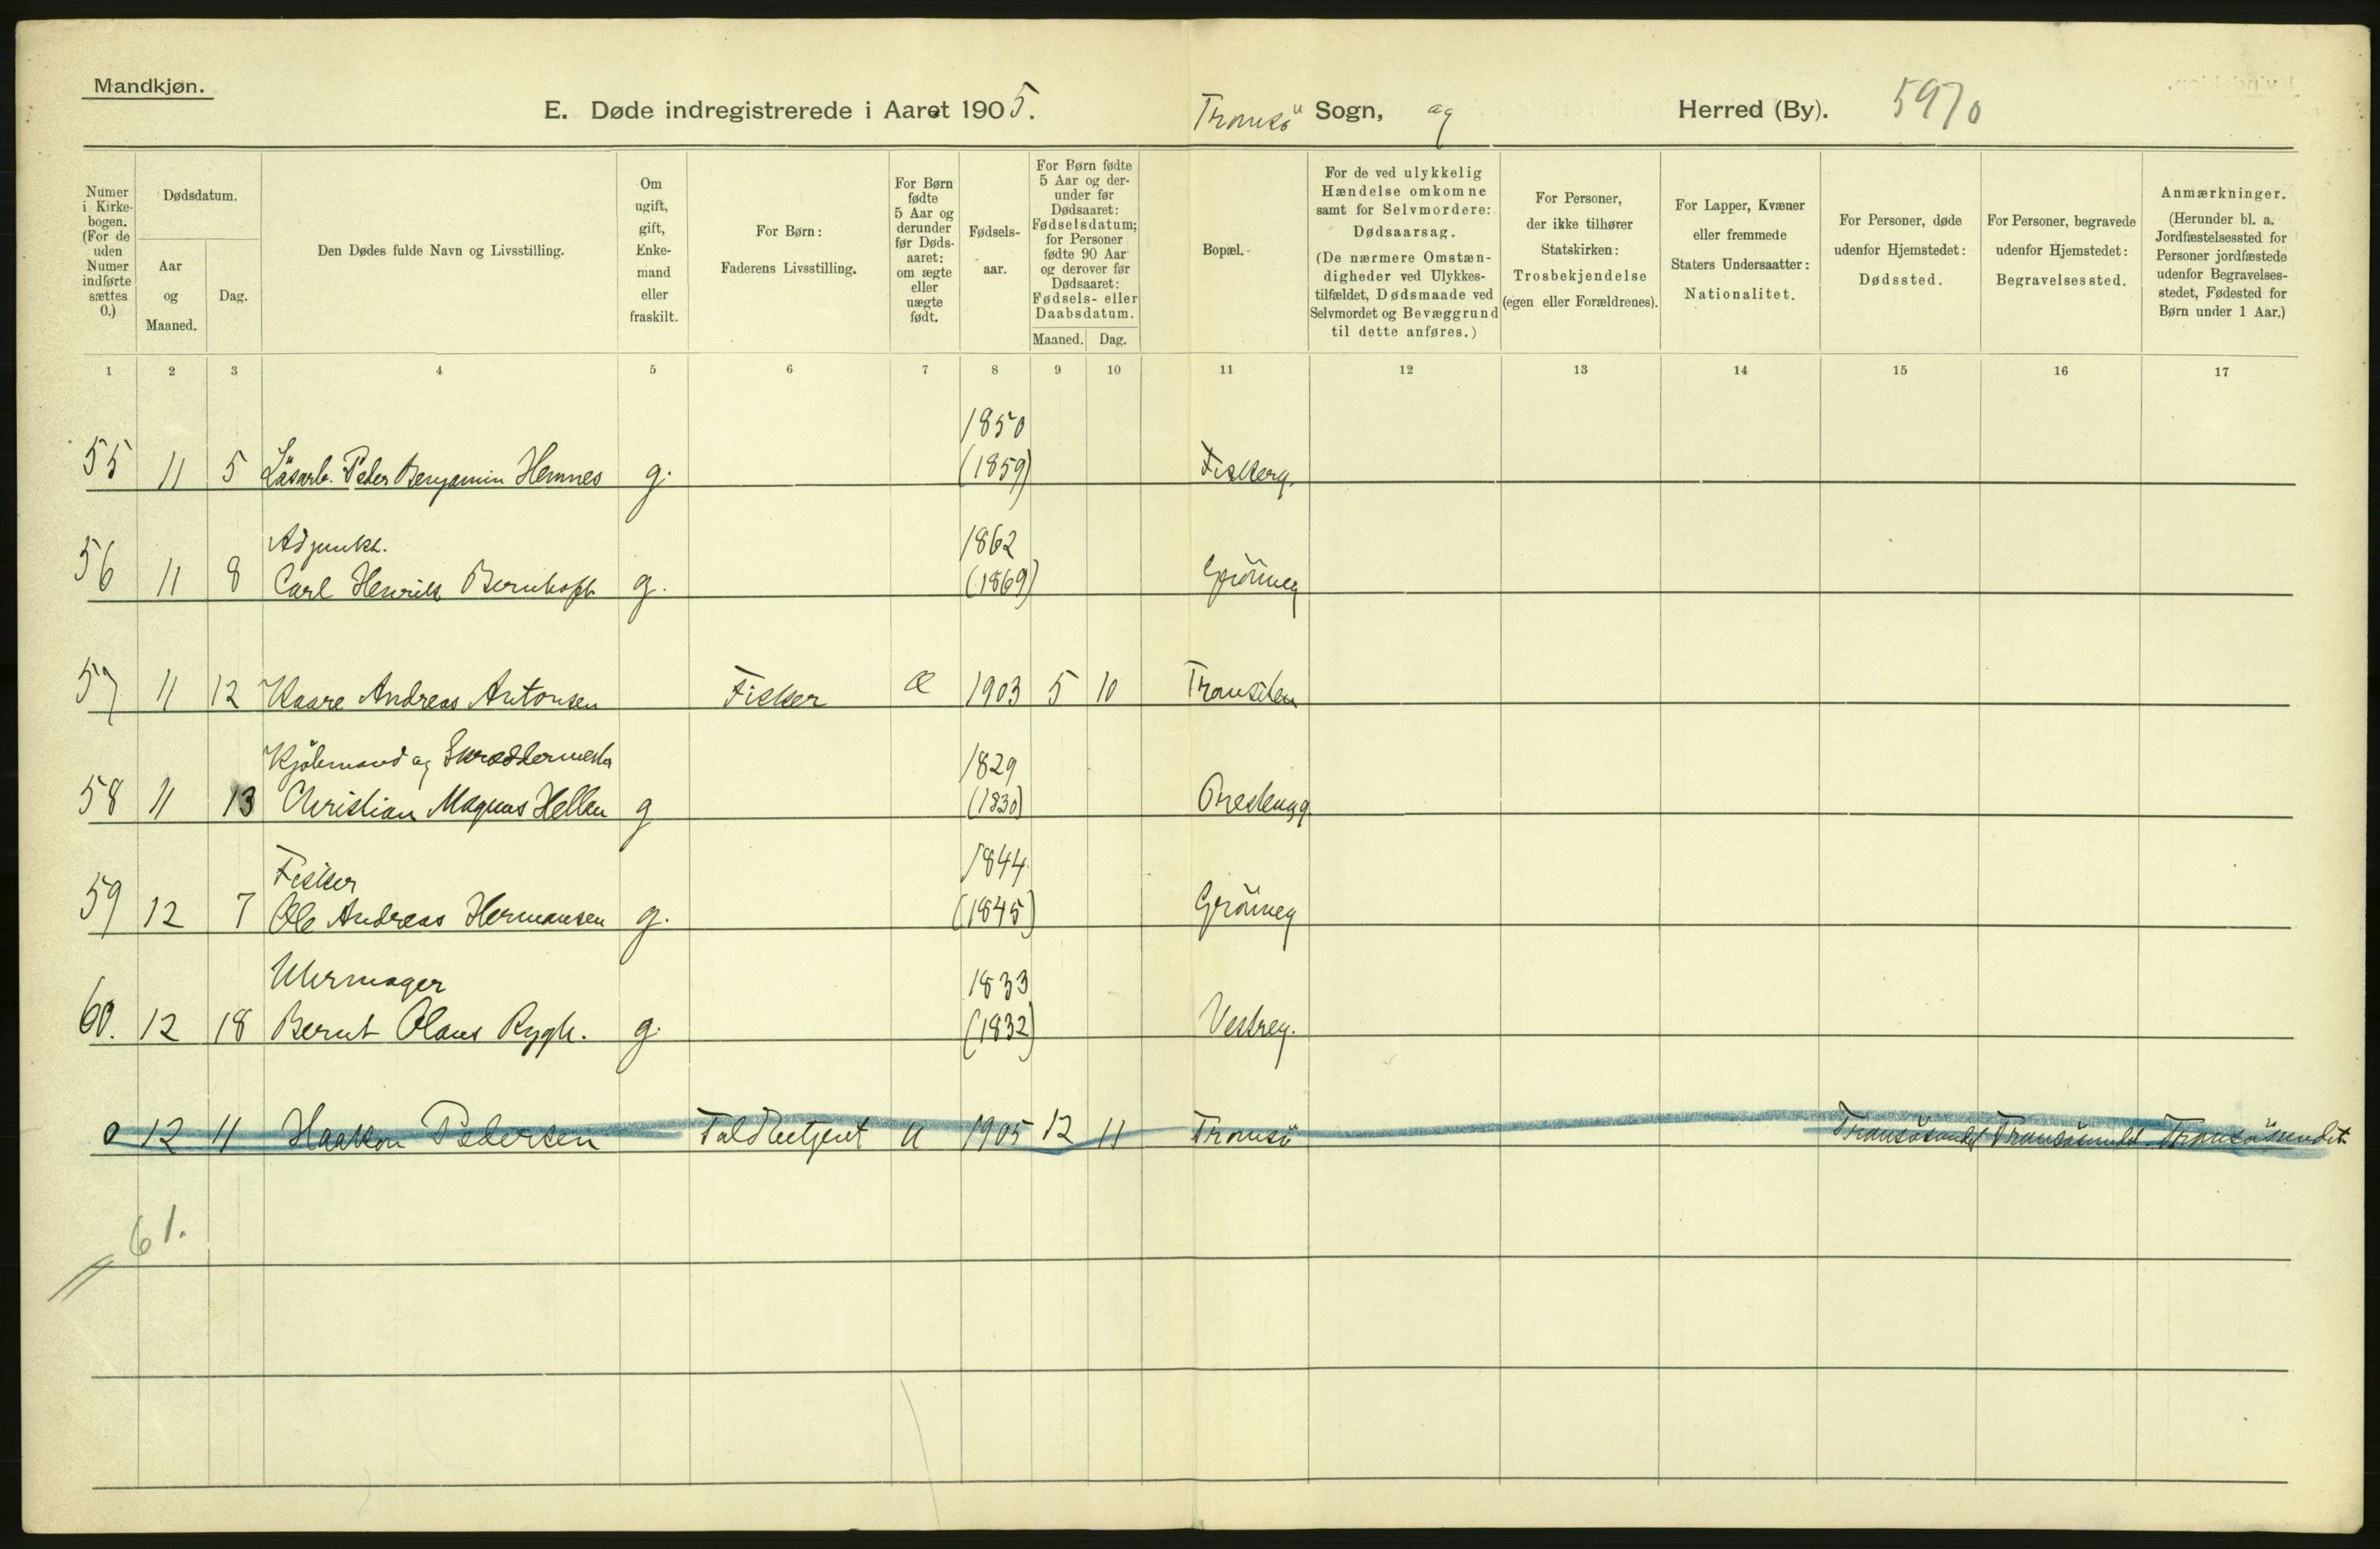 Mandkjøn.
E. Døde indregistrerede i Aaret 1905. Tromsö Sogn, og Herred (By). 5970
Numer i Kirkebogen. (For de uden Numer indførte sættes 0.)
Dødsdatum.
Aar og Maaned.
Dag.
Den Dødes fulde Navn og Livsstilling.
Om ugift, gift, Enkemand eller fraskilt.
For Børn: Faderens Livsstilling.
For Børn fødte 5 Aar og derunder før Dødsaaret: om ægte eller uægte født.
Fødselsaar.
For Børn fødte 5 Aar og derunder før Dødsaaret: Fødselsdatum; for Personer fødte 90 Aar og derover før Dødsaaret: Fødsels- eller Daabsdatum.
Maaned. Dag.
Bopæl.
For de ved ulykkelig Hændelse omkomne samt for Selvmordere: Dødsaarsag.
(De nærmere Omstændigheder ved Ulykkestilfældet, Dødsmaade ved Selvmordet og Bevæggrund til dette anføres.)
For Personer, der ikke tilhører Statskirken: Trosbekjendelse (egen eller Forældrenes).
For Lapper, Kvæner eller fremmede Staters Undersaatter: Nationalitet.
For Personer, døde udenfor Hjemstedet: Dødssted.
For Personer, begravede udenfor Hjemstedet: Begravelsessted.
Anmærkninger. (Herunder bl. a. Jordfæstelsessted for Personer jordfæstede udenfor Begravelsesstedet, Fødested for Børn under 1 Aar.)
1 2 3 4 5 6 7 8 9 10 11 12 13 14 15 16 17
1850
55 11 5 Løsarb. Peder Benjamin Hemnes g. (1859) Fiskerg.
Adjunkt. 1862
56 11 8 Carl Henrik Bernhoft g. (1869) Grönneg
57 11 12 Kaare Andreas Antonsen Fisker Æ 1903 5 10
Kjöbmand og Skræddermester 1829
58 11 13 Christian Magnus Hellen g (1830)
Fisker 1844
59 12 7 Ole Andreas Hermansen g. (1845) Grönneg
Uhrmager 1833
60. 12 18 Bernt Olaus Rygh. g. (1832) Vestreg.
0 12 11 Haakon Pedersen Toldbetjent U 1905 12 11 Tromsö Tromsösundet Tromsösundet Tromsösundet
61.